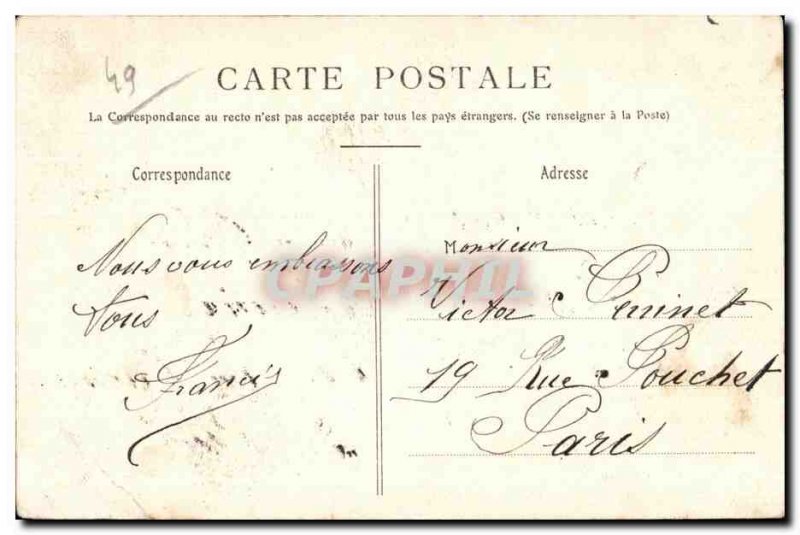 49
CARTE POSTALE
La Correspondance au recto n'est pas acceptée par tous les pays étrangers. (Se renseigner à la Poste)
Correspondance
Nous vous embrassons
tous
Francis
Adresse
Monsieur
Victor Perrinet
19 Rue Pouchet
Paris
CPAPHIL